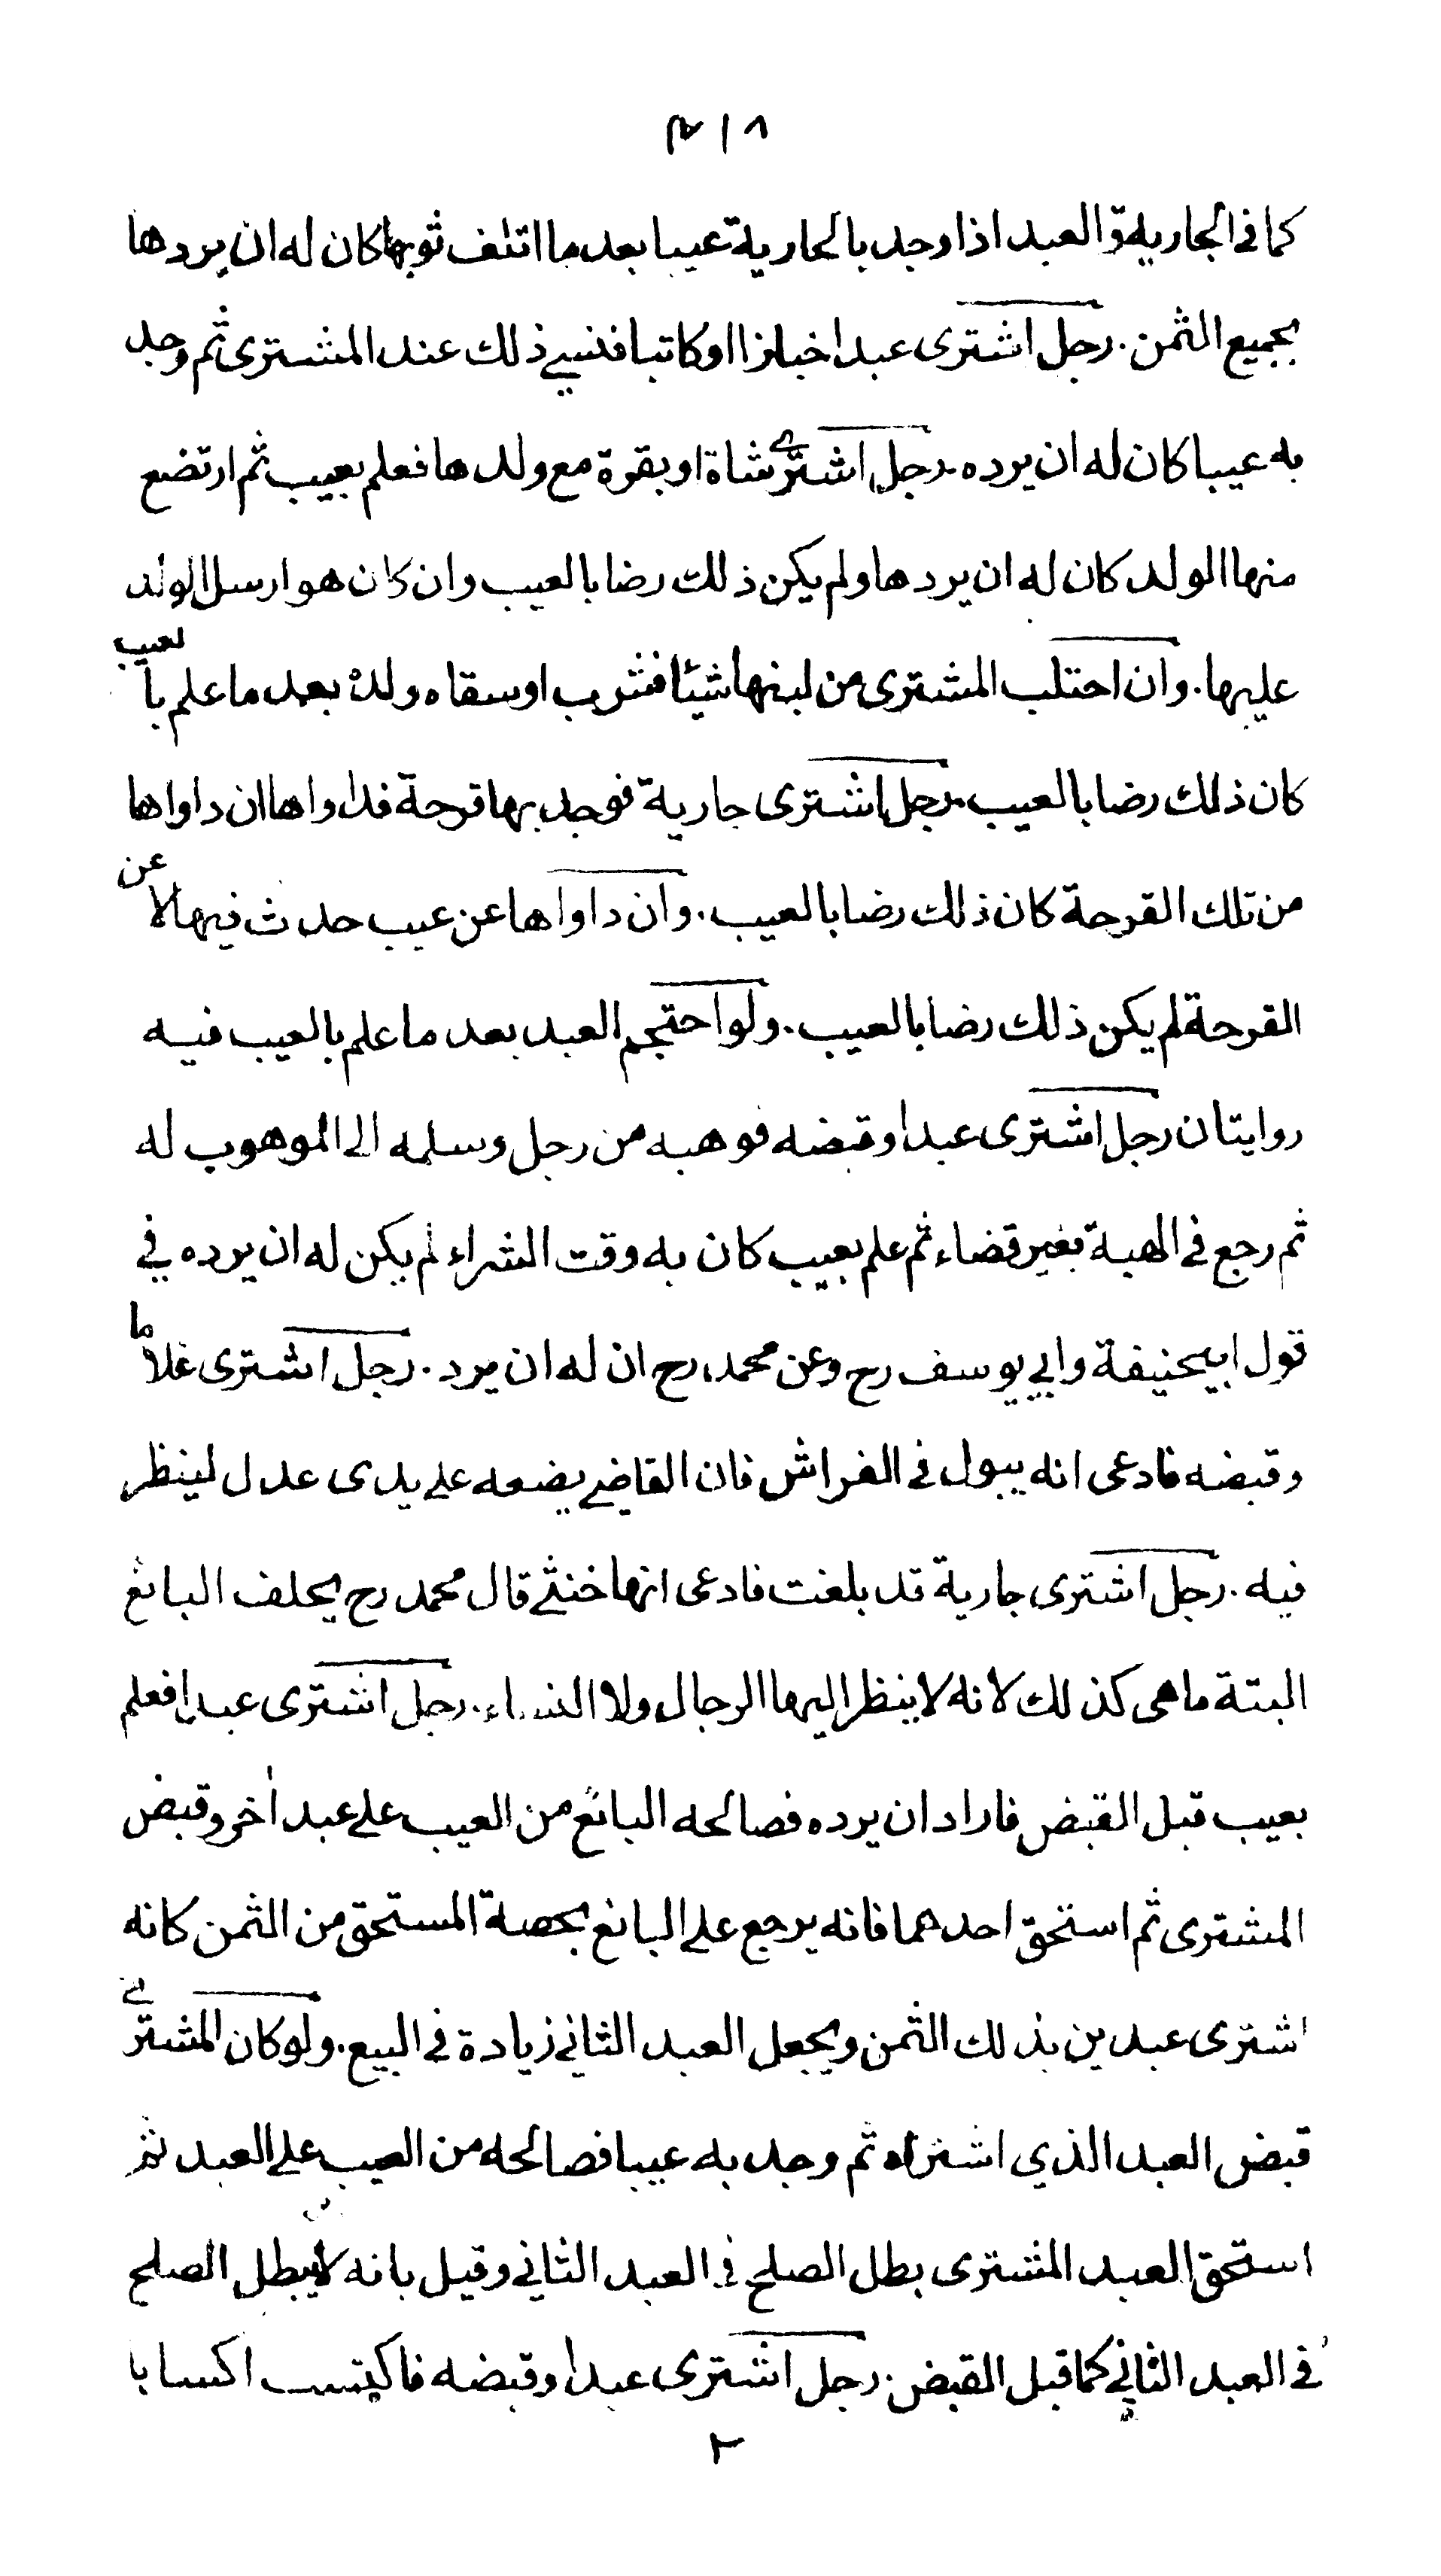 ٣١٨
كما في الجارية والعبد اذا وجد بالجارية عيبا بعد ما اتلف ثوبها كان له ان يردها
بجميع الثمن. رجل اشترى عبدا خبازا او كاتبا فنسي ذلك عند المشترى ثم وجد
به عيبا كان له ان يرده. رجل اشترى شاة او بقرة مع ولدها فعلم بعيب ثم ارتضع
منها الولد كان له ان يردها ولم يكن ذلك رضا بالعيب وان كان هو ارسل الولد
عليها. وان احتلب المشترى من لبنها شيئا فشرب او سقاه ولده بعد ما علم بالعيب
كان ذلك رضا بالعيب. رجل اشترى جارية فوجد بها قرحة فداواها ان داواها
من تلك القرحة كان ذلك رضا بالعيب. وان داواها عن عيب حدث فيها لا عن
القرحة لم يكن ذلك رضا بالعيب. ولو احتجم العبد بعد ما علم بالعيب فيه
روايتان رجل اشترى عبدا وقبضه فوهبه من رجل وسلمه الى الموهوب له
ثم رجع في الهبة بغير قضاء ثم علم بعيب كان به وقت الشراء لم يكن له ان يرده في
قول ابيحنيفة وابي يوسف رح وعن محمد رح ان له ان يرد. رجل اشترى غلاما
وقبضه فادعى انه يبول في الفراش فان القاضي يضعه على يدى عدل لينظر
فيه. رجل اشترى جارية قد بلغت فادعى انها خنثى قال محمد رح يحلف البائع
البتة ما هى كذلك لانه لا ينظر اليها الرجال ولا النساء. رجل اشترى عبدا فعلم
بعيب قبل القبض فاراد ان يرده فصالحه البائع من العيب على عبد اٰخر وقبض
المشترى ثم استحق احدهما فانه يرجع على البائع بحصة المستحق من الثمن كانه
اشترى عبدين بذلك الثمن ويجعل العبد الثاني زيادة في البيع. ولو كان المشترى
قبض العبد الذي اشتراه ثم وجد به عيبا فصالحه من العيب على العبد ثم
استحق العبد المشترى بطل الصلح في العبد الثاني وقيل بانه لا يبطل الصلح
في العبد الثاني كما قبل القبض. رجل اشترى عبدا وقبضه فاكتسب اكسابا
٢